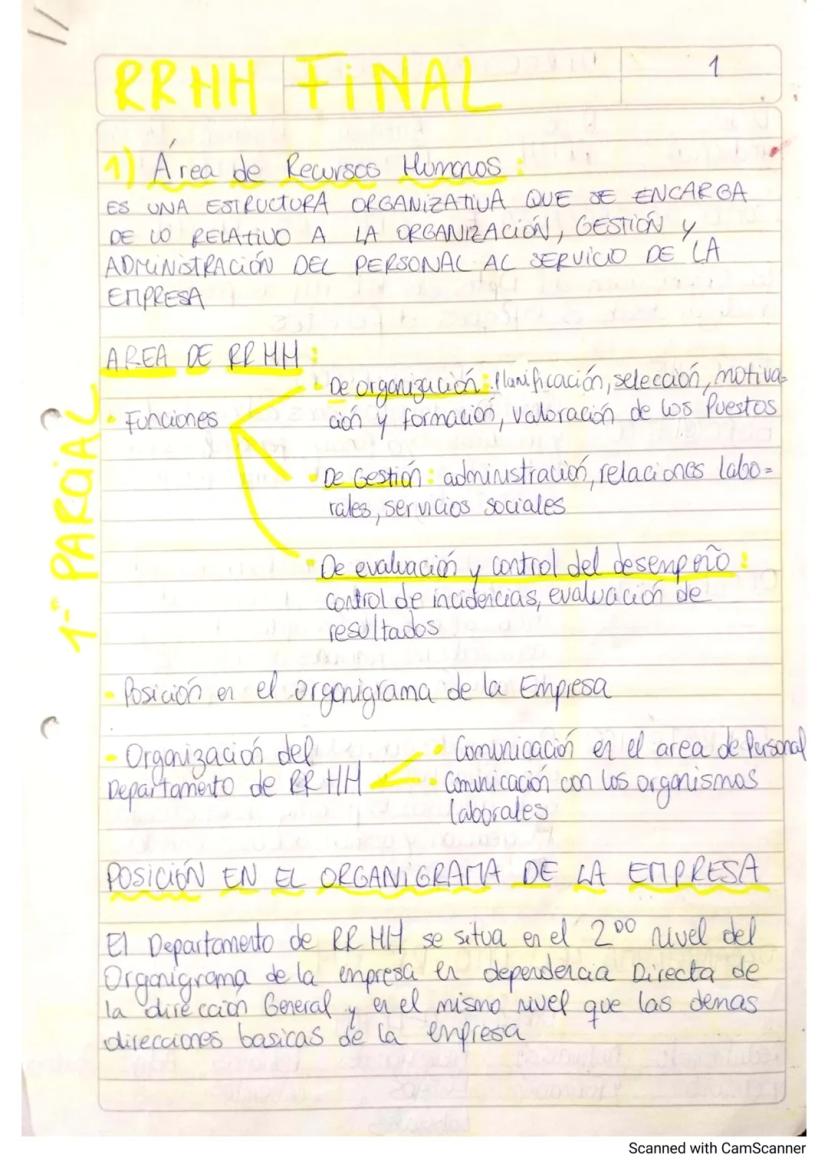 RRHH FINAL
1
1) Área de Recursos Humanos:
ES UNA ESTRUCTURA ORGANIZATIVA QUE SE ENCARGA
DE LO RELATIVO A LA ORGANIZACIÓN, GESTIÓN Y
ADMINISTRACIÓN DEL PERSONAL AL SERVICIO DE LA
EMPRESA
AREA DE RRHH:
• Funciones
• De organización: Planificación, selección, motiva-
ción y formación, valoración de los Puestos
• De Gestión: administración, relaciones labo-
rales, servicios sociales
• De evaluación y control del desempeño:
control de incidencias, evaluación de
resultados
1er PARCIAL
• Posición en el organigrama de la Empresa
• Organización del
Departamento de RRHH
• Comunicación en el area de Personal
• Comunicación con los organismos
laborales
POSICIÓN EN EL ORGANIGRAMA DE LA EMPRESA
El Departamento de RRHH se situa en el 2do nivel del
Organigrama de la empresa en dependencia Directa de
la dirección General y en el mismo nivel que las demas
direcciones basicas de la empresa
Scanned with CamScanner